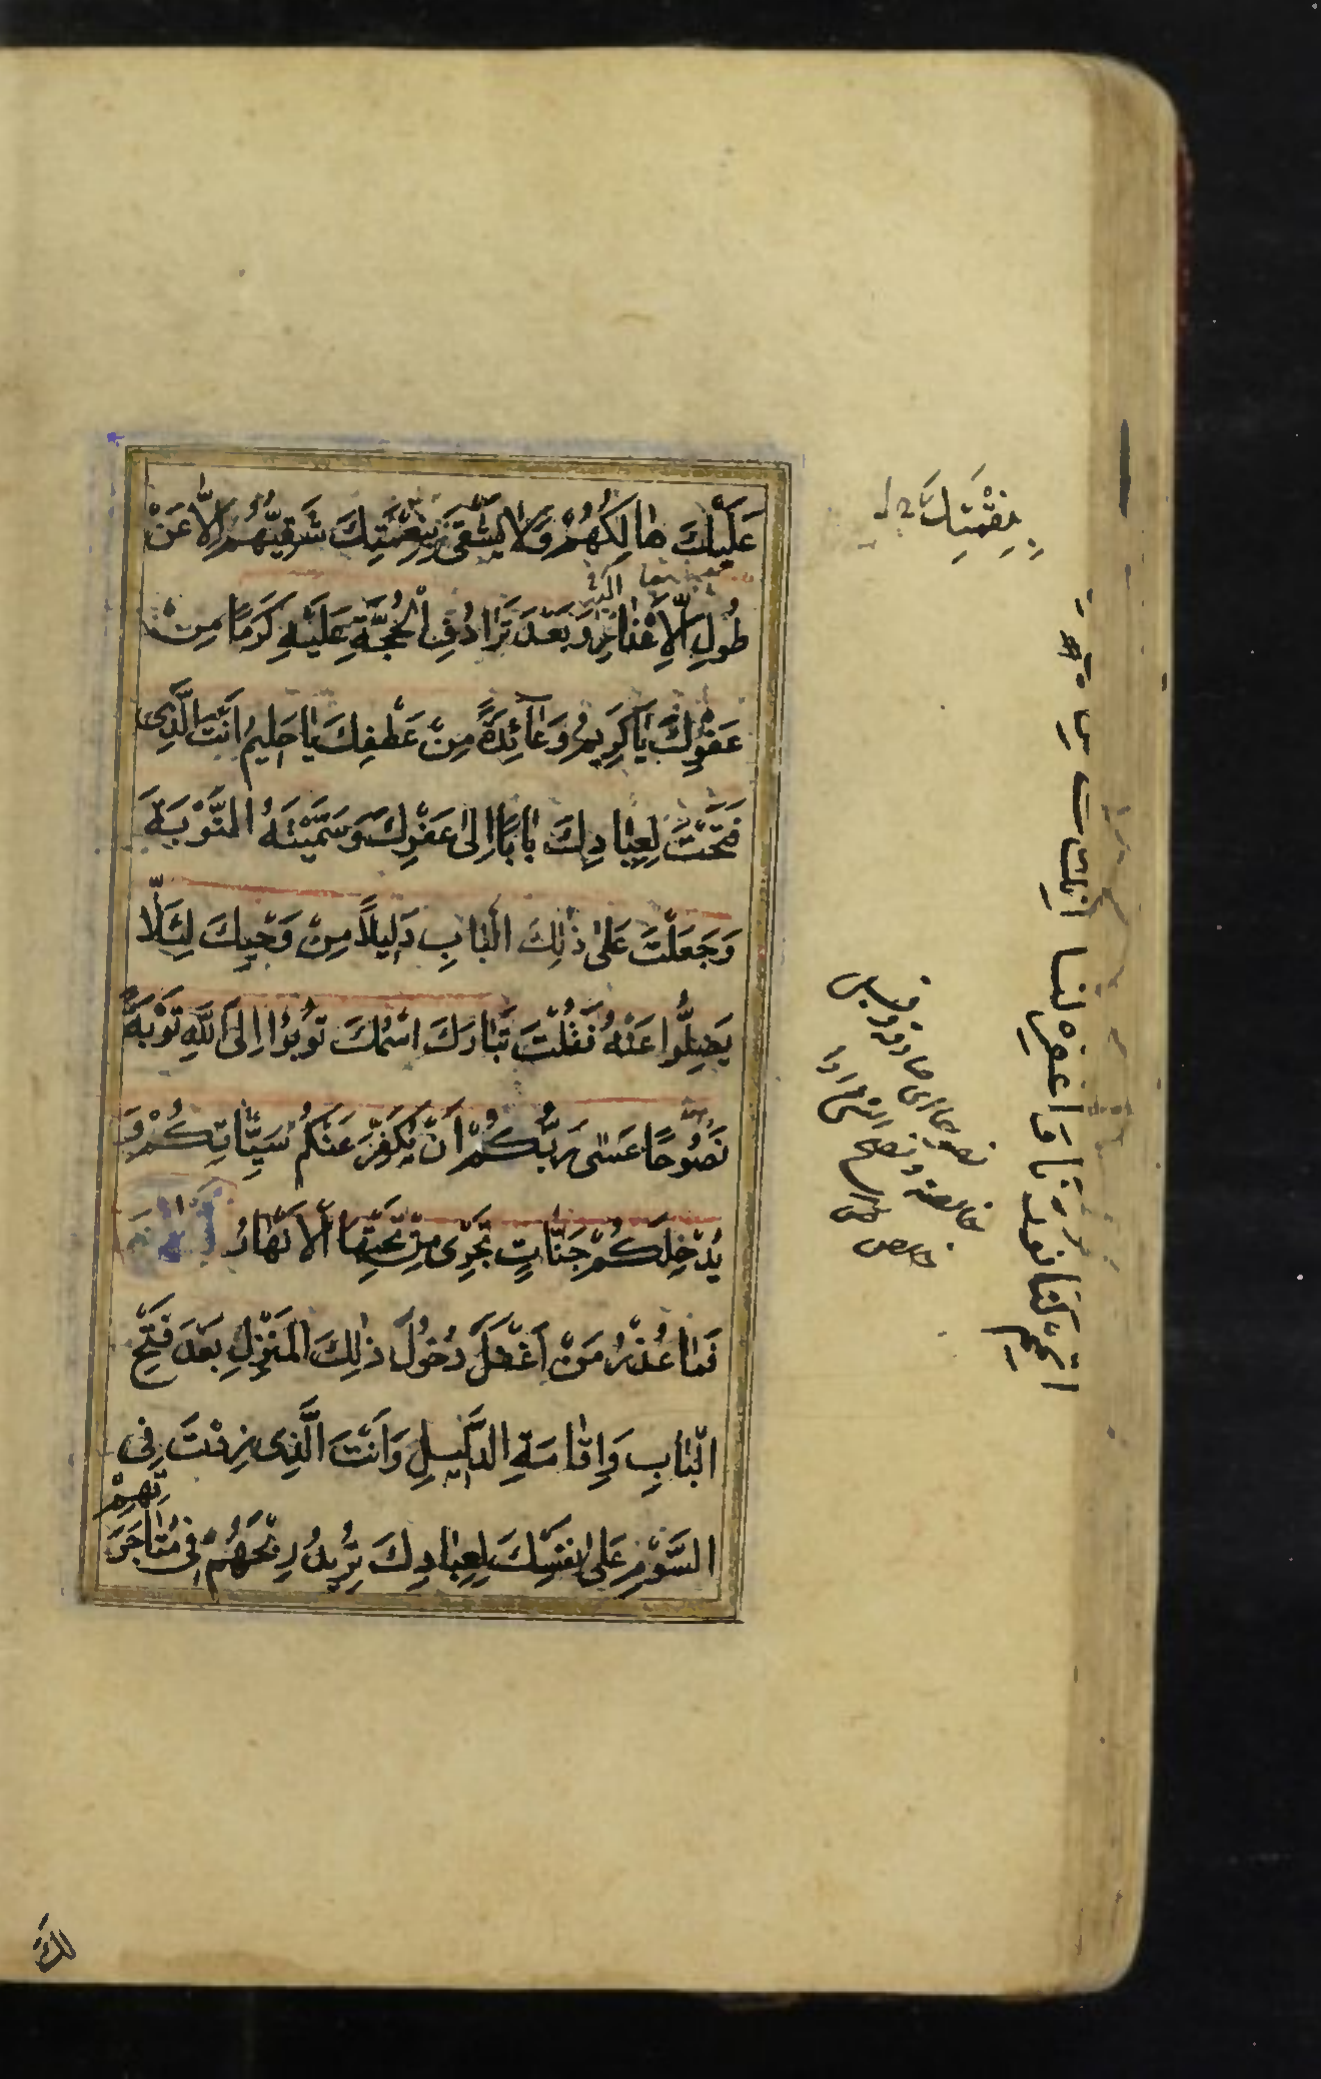 عَلَيْكَ هَالِكُهُمْ وَلَا يَشْقَىٰ بِنِعْمَتِكَ شَقِيُّهُمْ إِلَّا عَنْ
طُولِ الْإِعْذَارِ وَبَعْدَ تَرَادُفِ الْحُجَّةِ عَلَيْهِ كَرَمًا مِنْ
عَفْوِكَ يَا كَرِيمُ وَعَائِدَةً مِنْ عَطْفِكَ يَا حَلِيمُ أَنْتَ الَّذِي
فَتَحْتَ لِعِبَادِكَ بَابًا إِلَىٰ عَفْوِكَ وَسَمَّيْتَهُ التَّوْبَةَ
وَجَعَلْتَ عَلَىٰ ذَٰلِكَ الْبَابِ دَلِيلًا مِنْ وَحْيِكَ لِئَلَّا
يَضِلُّوا عَنْهُ فَقُلْتَ تَبَارَكَ اسْمُكَ تُوبُوا إِلَى اللَّهِ تَوْبَةً
نَصُوحًا عَسَىٰ رَبُّكُمْ أَنْ يُكَفِّرَ عَنْكُمْ سَيِّئَاتِكُمْ وَ
يُدْخِلَكُمْ جَنَّاتٍ تَجْرِي مِنْ تَحْتِهَا الْأَنْهَارُ
فَمَا عُذْرُ مَنْ أَغْفَلَ دُخُولَ ذَٰلِكَ الْمَنْزِلِ بَعْدَ فَتْحِ
الْبَابِ وَإِقَامَةِ الدَّلِيلِ وَأَنْتَ الَّذِي زِدْتَ فِي
السَّوْمِ عَلَىٰ نَفْسِكَ لِعِبَادِكَ تُرِيدُ رِبْحَهُمْ فِي مُتَاجَرَتِهِمْ
بِنِقْمَتِكَ
أَتْمِمْ لَنَا نُورَنَا وَاغْفِرْ لَنَا إِنَّكَ
لَكَ